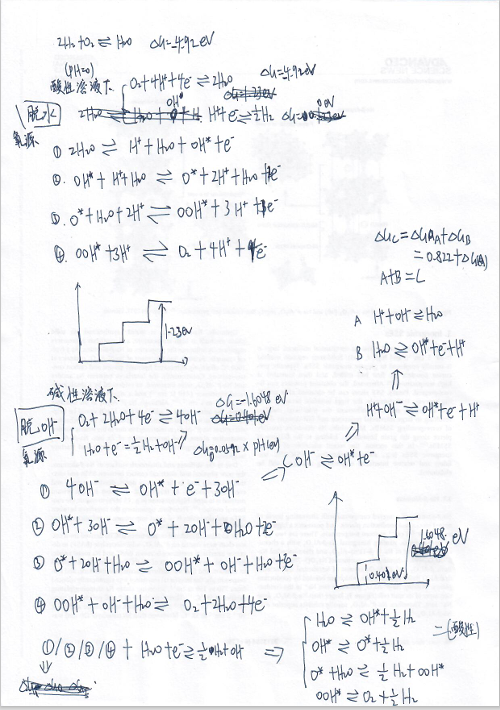 2H₂+O₂⇌H₂O ΔG=-4.92eV
(pH=0)
酸性溶液下 O₂+4H⁺+4e⁻⇌2H₂O ΔG=-4.92eV
脱H₂O
H⁺+e⁻⇌½H₂ ΔG=0eV
氧源
① 2H₂O ⇌ H⁺+H₂O+OH*+e⁻
②. OH*+H⁺+H₂O ⇌ O*+2H⁺+H₂O+e⁻
③. O*+H₂O+2H⁺⇌OOH*+3H⁺+e⁻
④. OOH*+3H⁺ ⇌ O₂+4H⁺+e⁻
1.23eV
ΔG_C=ΔG_A+ΔG_B
=0.822+ΔG
A+B=C
A H⁺+OH⁻⇌H₂O
B H₂O⇌OH*+e⁻+H⁺
H⁺+OH⁻⇌OH*+e⁻+H⁺
C OH⁻⇌OH*+e⁻
碱性溶液下
脱OH⁻
氧源
O₂+2H₂O+4e⁻⇌4OH⁻ ΔG=-1.6048eV
H₂O+e⁻=½H₂+OH⁻ ΔG=0.0592×pH(eV)
① 4OH⁻ ⇌ OH*+e⁻+3OH⁻
② OH*+3OH⁻ ⇌ O*+2OH⁻+H₂O+e⁻
③ O*+2OH⁻+H₂O ⇌ OOH*+OH⁻+H₂O+e⁻
④ OOH*+OH⁻+H₂O ⇌ O₂+2H₂O+e⁻
1.6048 eV
0.401eV
①/②/③/④ + H₂O+e⁻⇌½H₂+OH⁻ ⇒
H₂O ⇌ OH*+½H₂
OH* ⇌ O*+½H₂
O*+H₂O ⇌ ½H₂+OOH*
OOH* ⇌ O₂+½H₂
=(酸性)